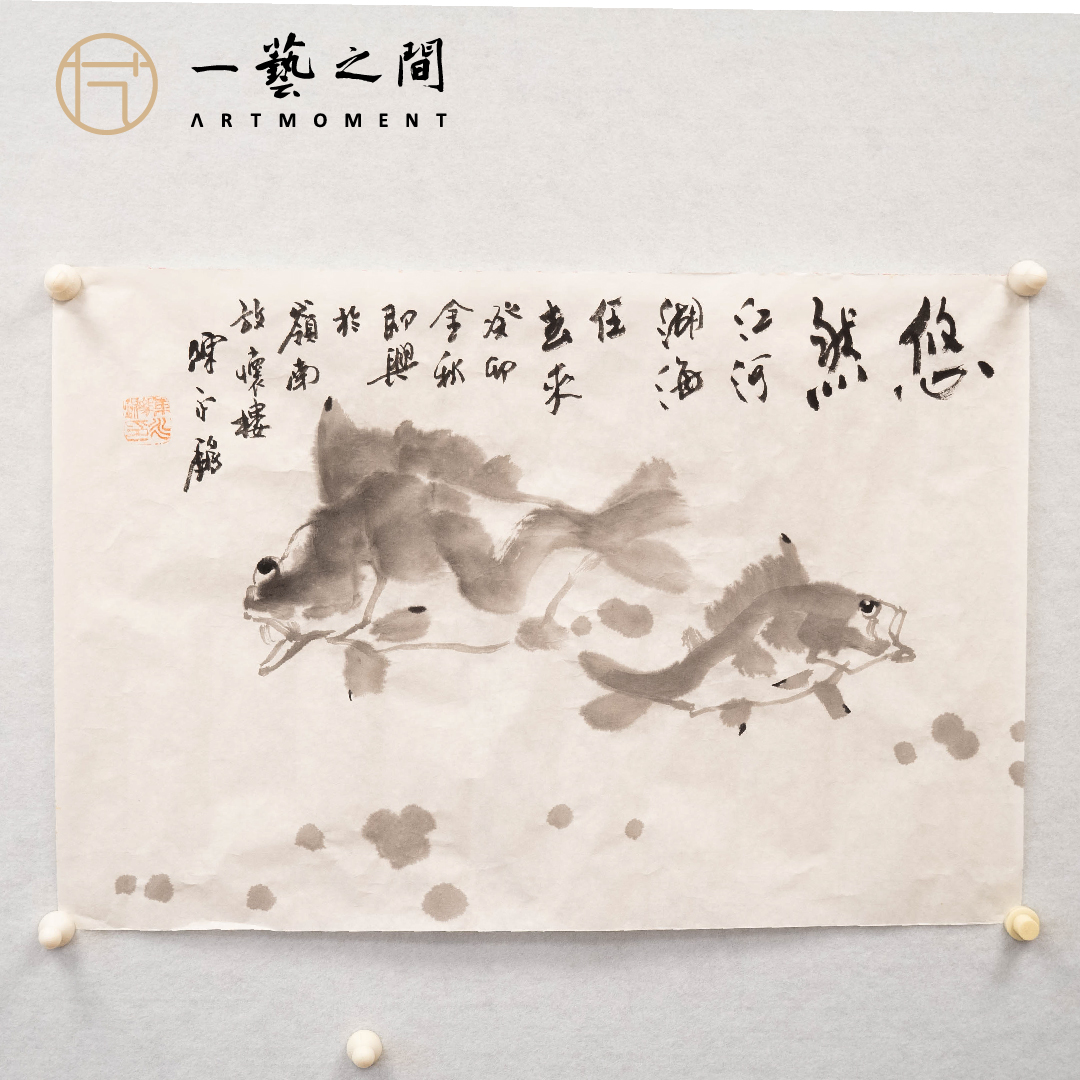 一藝之間
ARTMOMENT
悠
然
江河
湖海
任
去來
癸卯
金秋
即興
於
嶺南
放懷樓
陳永鏘